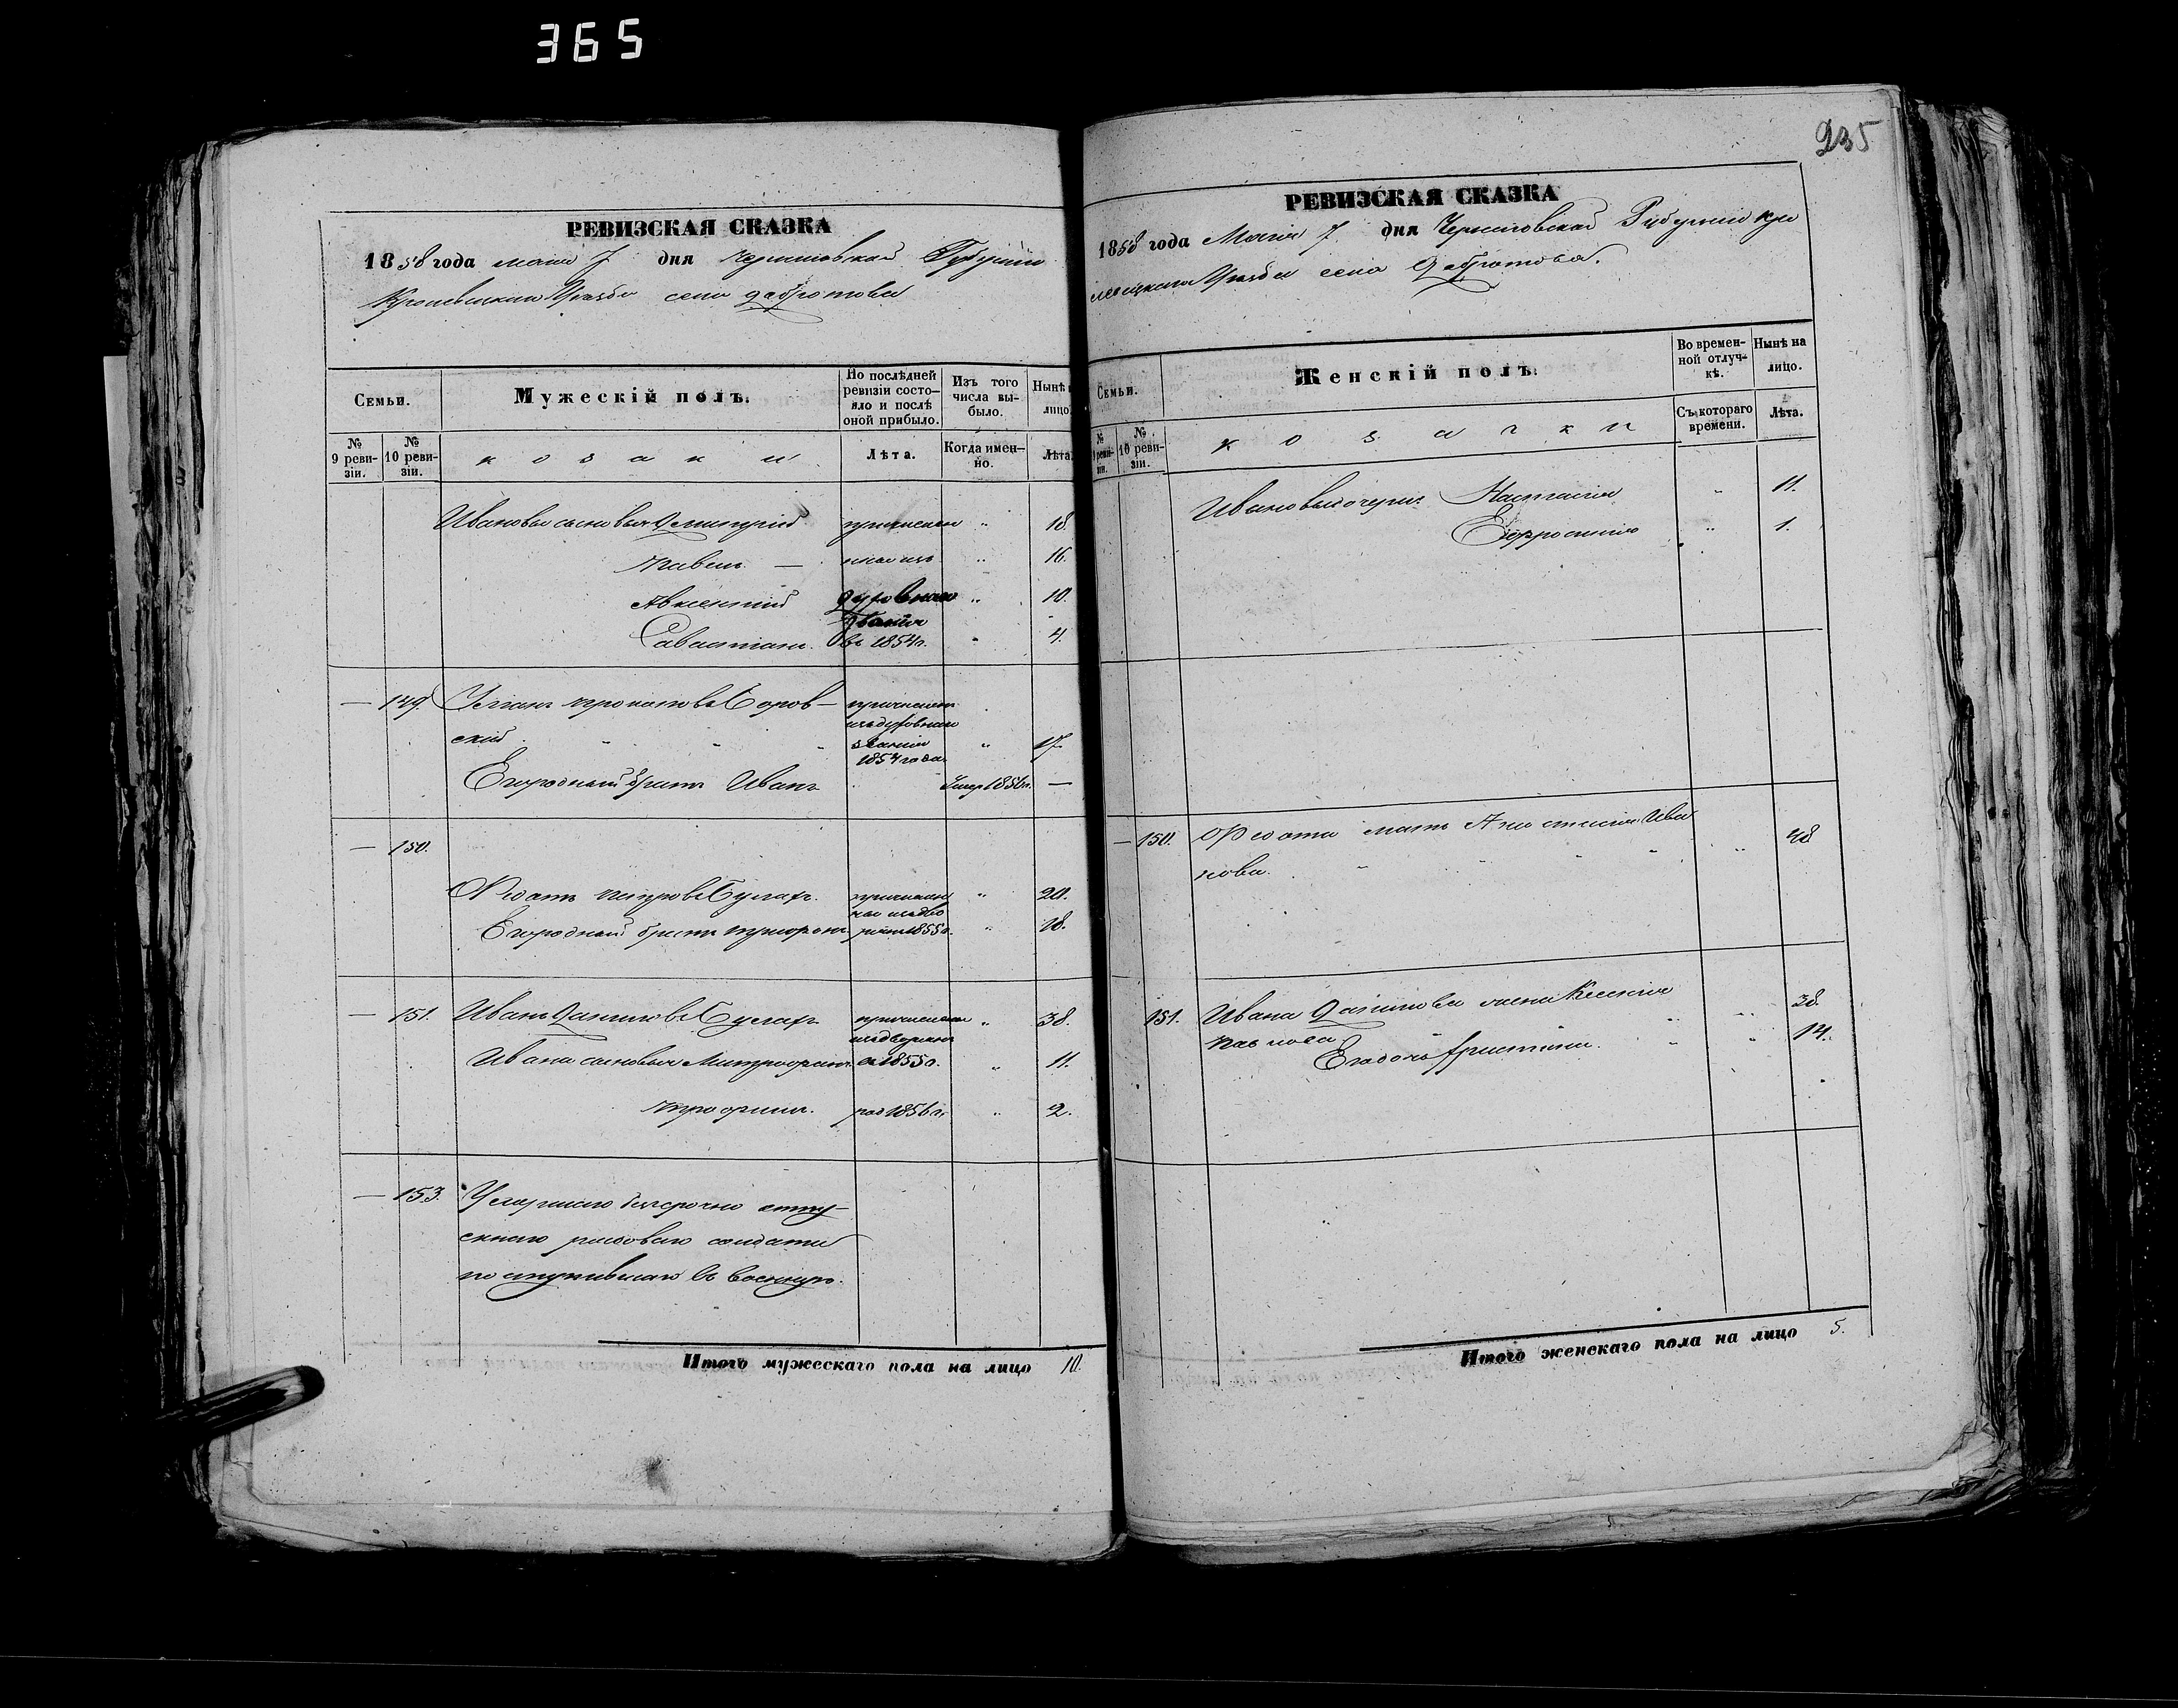 365
РЕВИЗСКАЯ СКАЗКА
1858 года мая 7 дня Черниговской Губерніи
Кролевецкаго Уезда села Добротова
Семьи.
Мужескій полъ.
По послѣдней ревизіи состо-
яло и послѣ
оной прибыло.
Изъ того
числа вы-
было.
Нынѣ
лицо
№
9 реви-
зіи.
№
10 реви-
зіи.
козаки
Лѣта.
Когда имен-
но.
Лѣта
Ивановы сыновья Дмитрій причислен " 18
Павелъ — 16.
Авксентій духовнаго " 10.
званія
Савастіанъ. въ 1854г. " 4.
— 149. Боров- причислен
изъ духовнаго
скій " " " званія " 17
1854 года
Его родный братъ Иванъ Умер 1856г. —
— 150.
Федотъ Петровъ Бугаръ. " 20.
Его родный братъ 1855г. " 18.
— 151. Иванъ Даниловъ Бугаръ причислен " 38.
Ивана сыновья Митрофанъ въ 1855г. " 11.
Трофимъ. род 1856г. " 2.
— 153. Умершаго безсрочно отпу-
скнаго рядоваго солдата
поступившаго въ военную.
Итого мужескаго пола на лицо 10.
235
РЕВИЗСКАЯ СКАЗКА
1858 года Маія 7 дня Черниговской Губерніи Кро
левецкаго Уезда села Добротова.
Семьи.
Женскій полъ.
Во времен-
ной отлуч-
кѣ.
Нынѣ на
лицо.
№
9 реви-
зіи.
№
10 реви-
зіи.
козачки
Съ котораго
времени.
Лѣта.
Ивановы дочери Настасія " 11.
Ефросинія " 1.
— 150. Федота мать Анастасія Ива " 48
нова. " " "
151. Ивана Данилова жена Ксенія " 38.
Его дочь Христина. " " 14.
Итого женскаго пола на лицо 5.